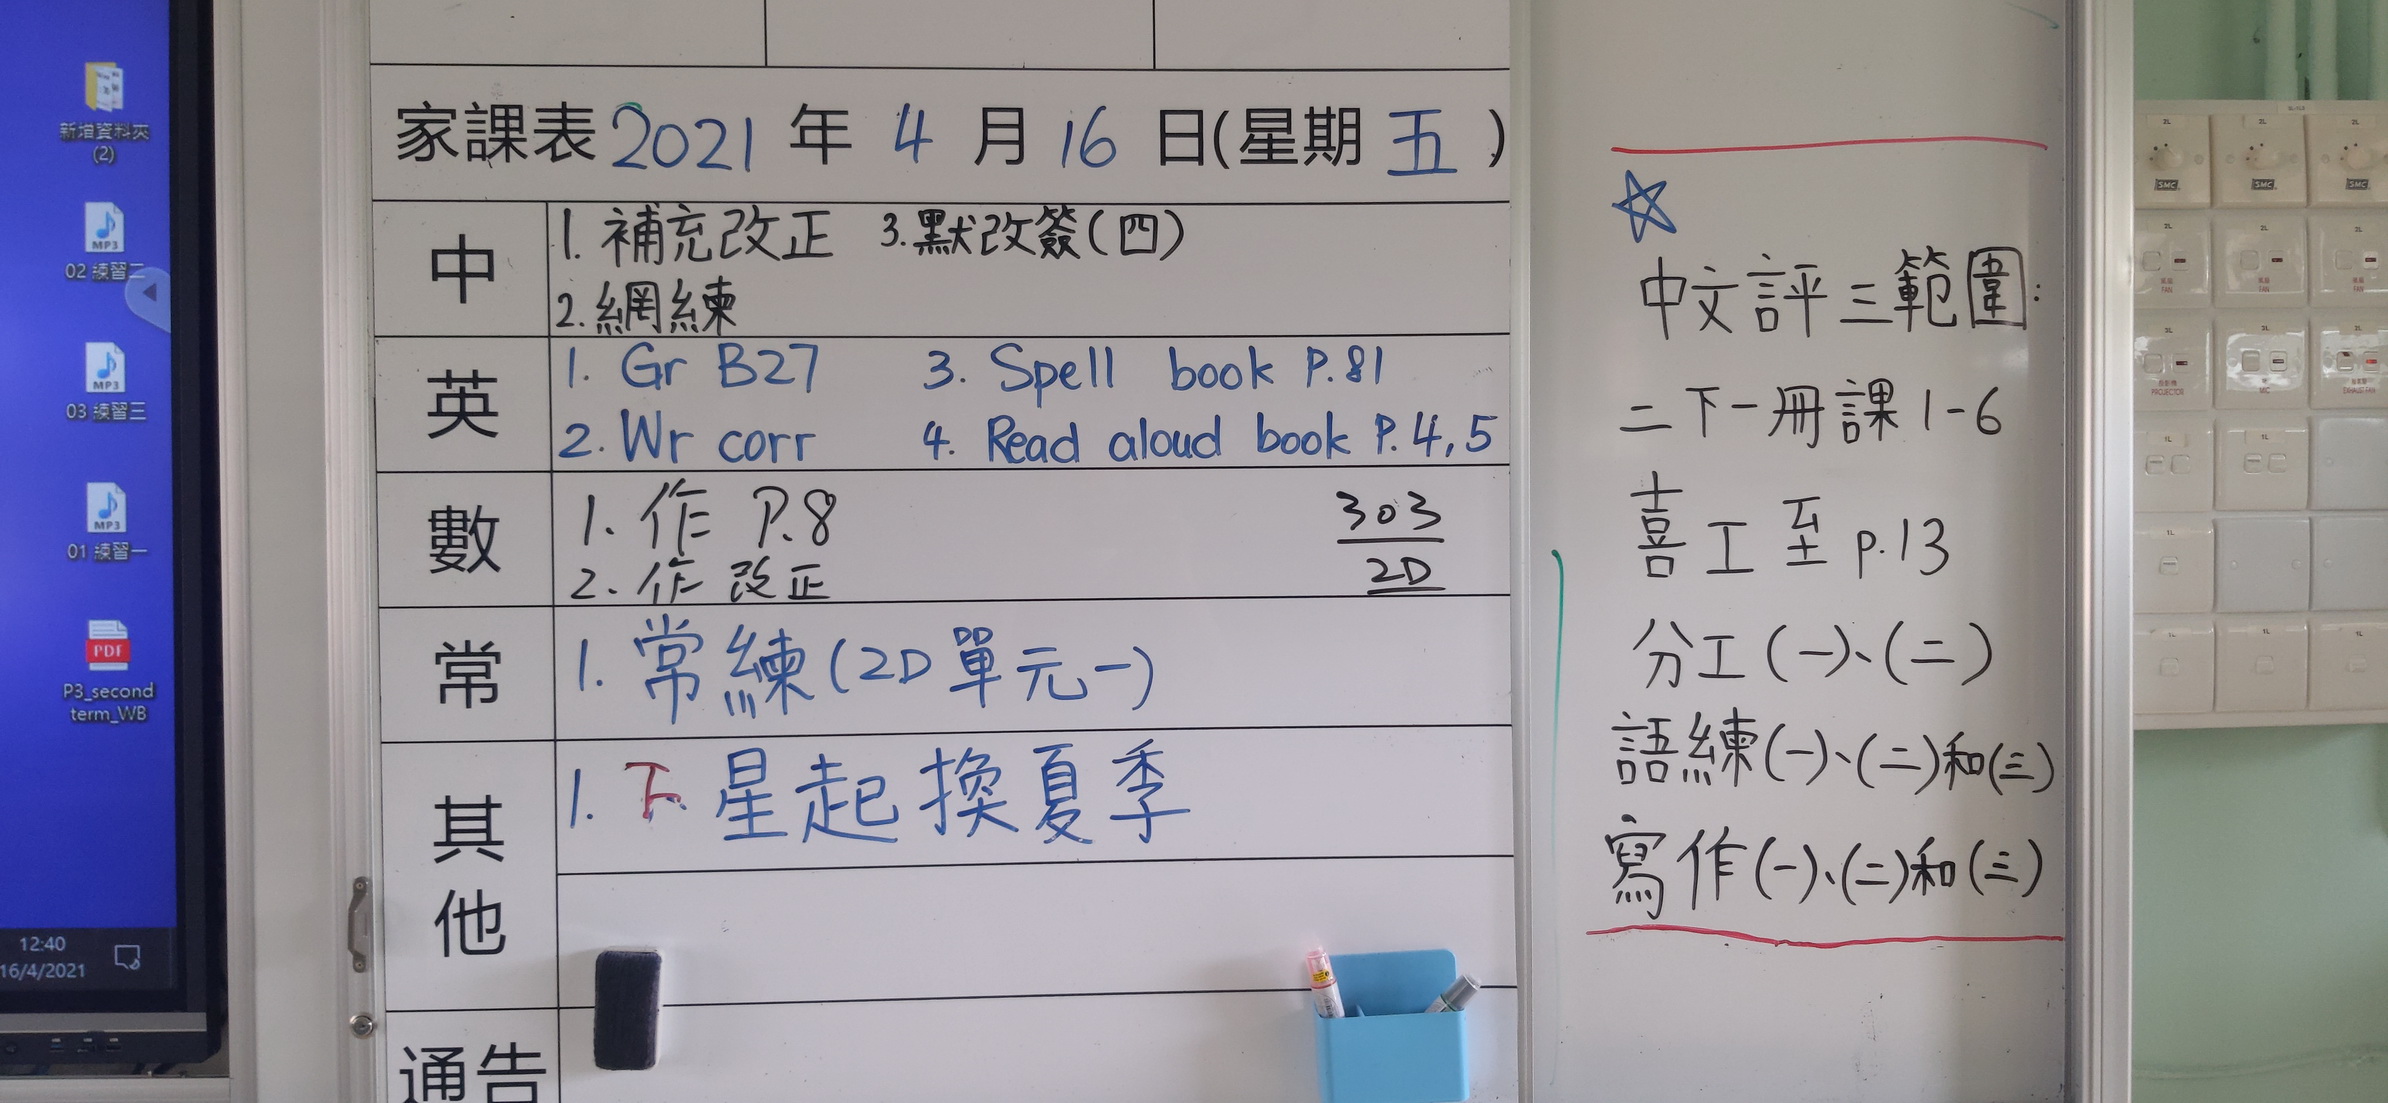 新增資料夾
(2)
MP3
02 練習二
MP3
03 練習三
MP3
01 練習一
PDF
P3_second
term_WB
12:40
16/4/2021
家課表 2021 年 4 月 16 日(星期 五 )
中
1. 補充改正 3. 默改簽(四)
2. 網練
英
1. Gr B27 3. Spell book P.81
2. Wr corr 4. Read aloud book P.4,5
數
1. 作 P.8
2. 作 改正
303
2D
常
1. 常練(2D 單元一)
其他
1. 下星起換夏季
通告
中文評三範圍:
二下一冊課1-6
喜工至p.13
分工(一)、(二)
語練(一)、(二)和(三)
寫作(一)、(二)和(三)
SMC
SMC
SMC
FAN
FAN
FAN
PROJECTOR
MIC
EXHAUST FAN